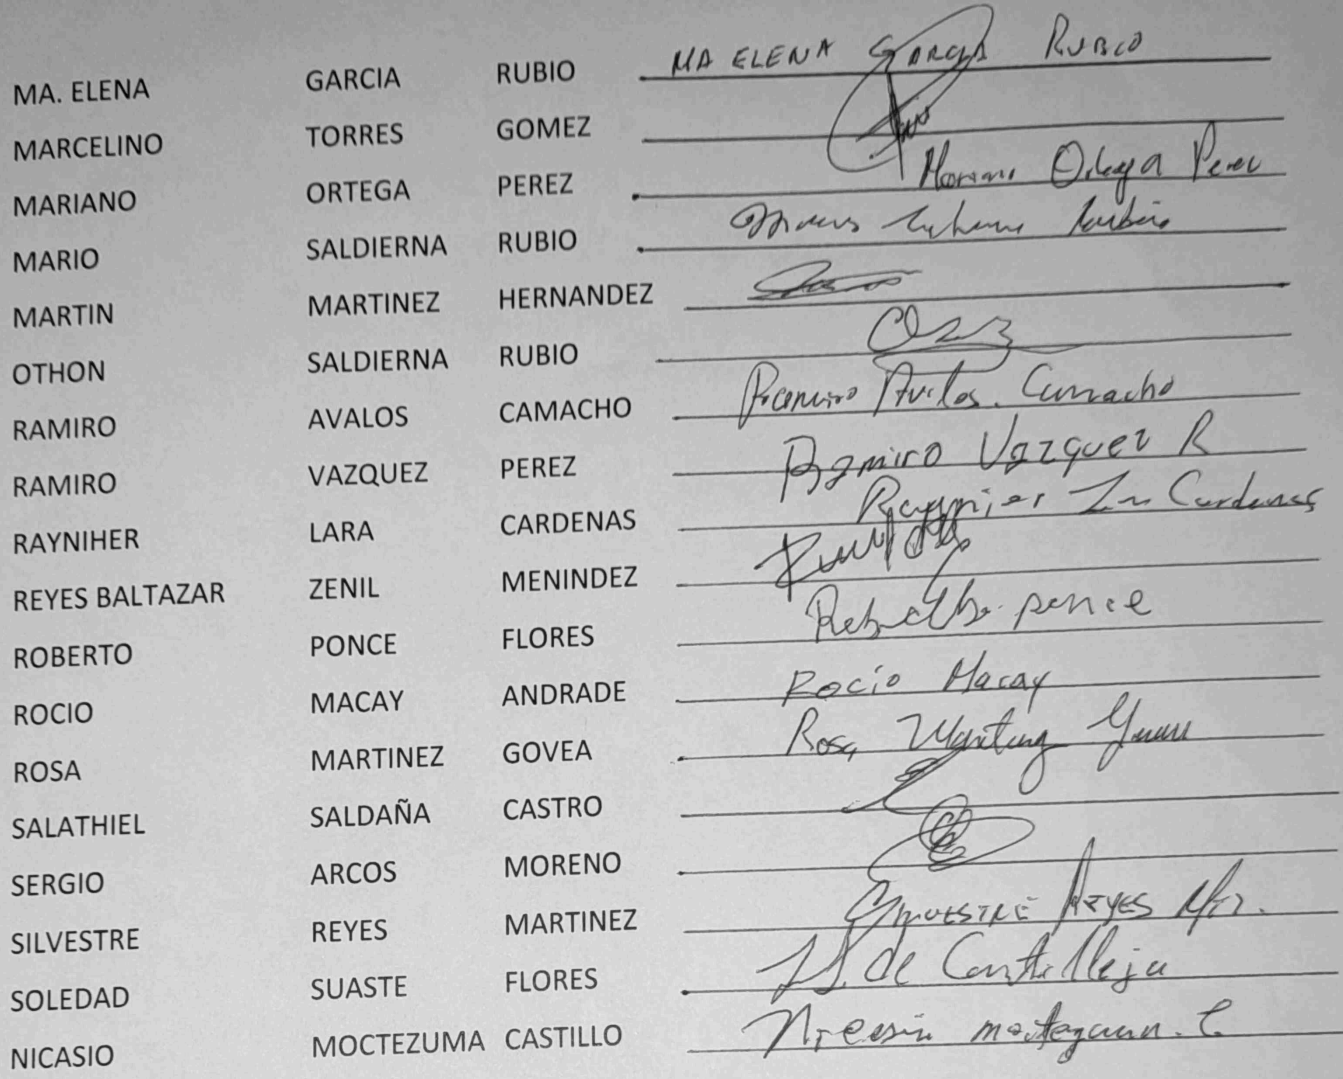 MA. ELENA GARCIA RUBIO MA ELENA GARCIA RUBIO
MARCELINO TORRES GOMEZ
MARIANO ORTEGA PEREZ Mariano Ortega Perez
MARIO SALDIERNA RUBIO Rubio
MARTIN MARTINEZ HERNANDEZ
OTHON SALDIERNA RUBIO
RAMIRO AVALOS CAMACHO Ramiro Camacho
RAMIRO VAZQUEZ PEREZ Ramiro Vazquez R
RAYNIHER LARA CARDENAS Cardenas
REYES BALTAZAR ZENIL MENINDEZ
ROBERTO PONCE FLORES ponce
ROCIO MACAY ANDRADE Rocio Macay
ROSA MARTINEZ GOVEA Rosa
SALATHIEL SALDAÑA CASTRO
SERGIO ARCOS MORENO
SILVESTRE REYES MARTINEZ REYES
SOLEDAD SUASTE FLORES de Castilleja
NICASIO MOCTEZUMA CASTILLO